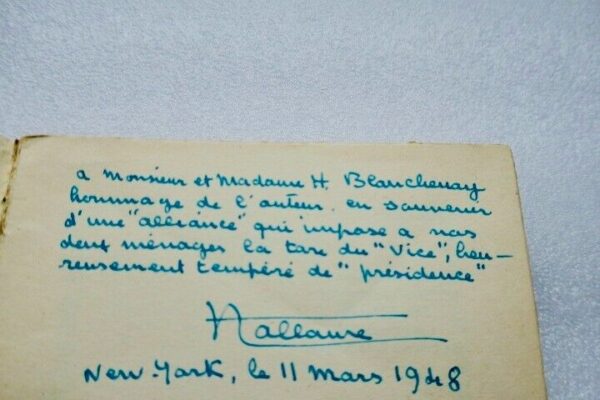 a Monsieur et Madame H. Blanchenay
hommage de l'auteur, en souvenir
d'une "alliance" qui impose a nos
deux ménages la tare du "Vice", heu-
reusement tempéré de "présidence"
New-York, le 11 Mars 1948